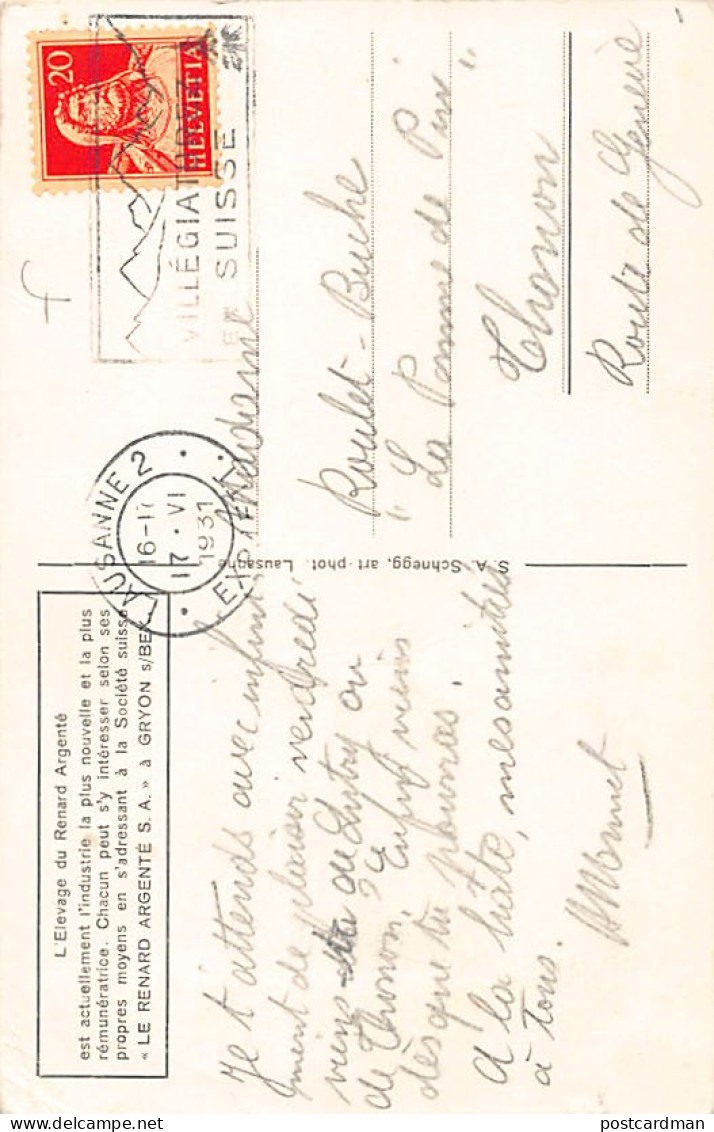 L'Elevage du Renard Argenté
est actuellement l'industrie la plus nouvelle et la plus
rémunératrice. Chacun peut s'y intéresser selon ses
propres moyens en s'adressant à la Société suisse
« LE RENARD ARGENTÉ S. A. » à GRYON s/BEX.
Je t'attends avec infini
ment de plaisir vendredi
viens de Lutry ou
de Thonon. Enfin viens
dès que tu pourras.
A la hâte, mes amitiés
à tous.
HMonnet
S. A. Schnegg, art. phot. Lausanne
20
HELVETIA
VILLÉGIATUREZ
EN SUISSE
LAUSANNE 2
16-17
17. VI
1931
Madame
Roulet-Buche
"La Pomme de Pin"
Thonon
Route de Genève
postcardman